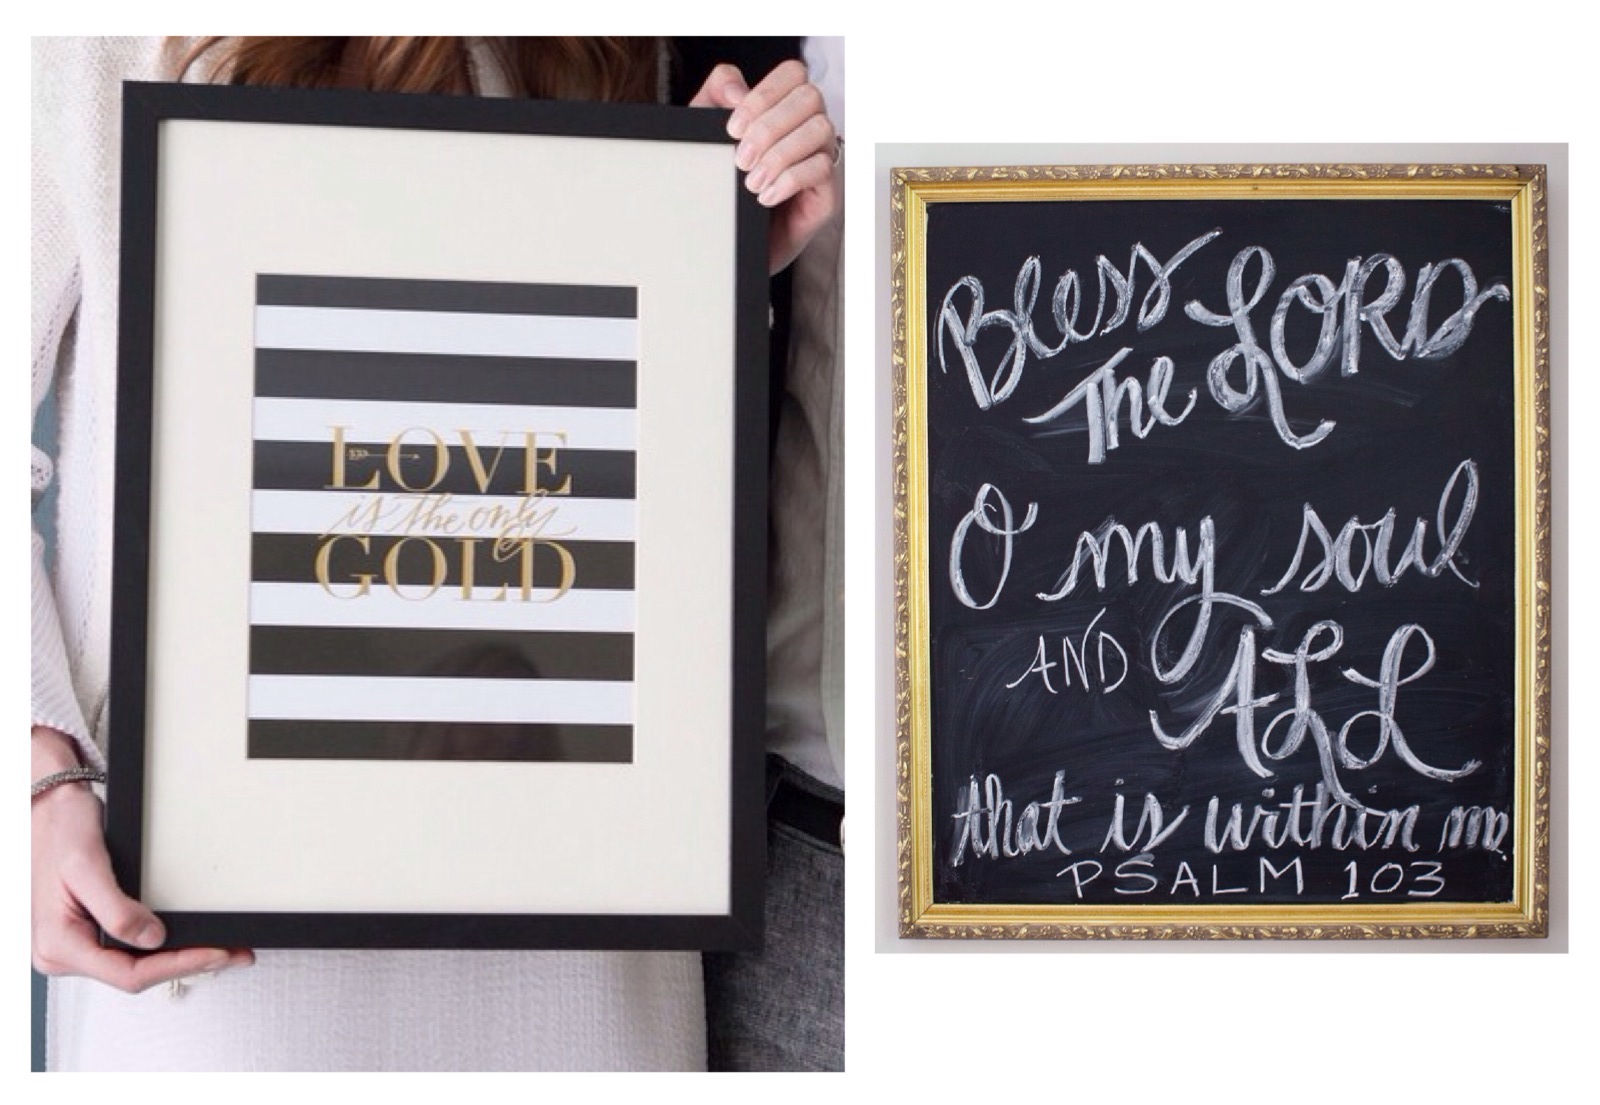 LOVE
is the only
GOLD
Bless
The LORD
O my soul
AND ALL
that is within me.
PSALM 103